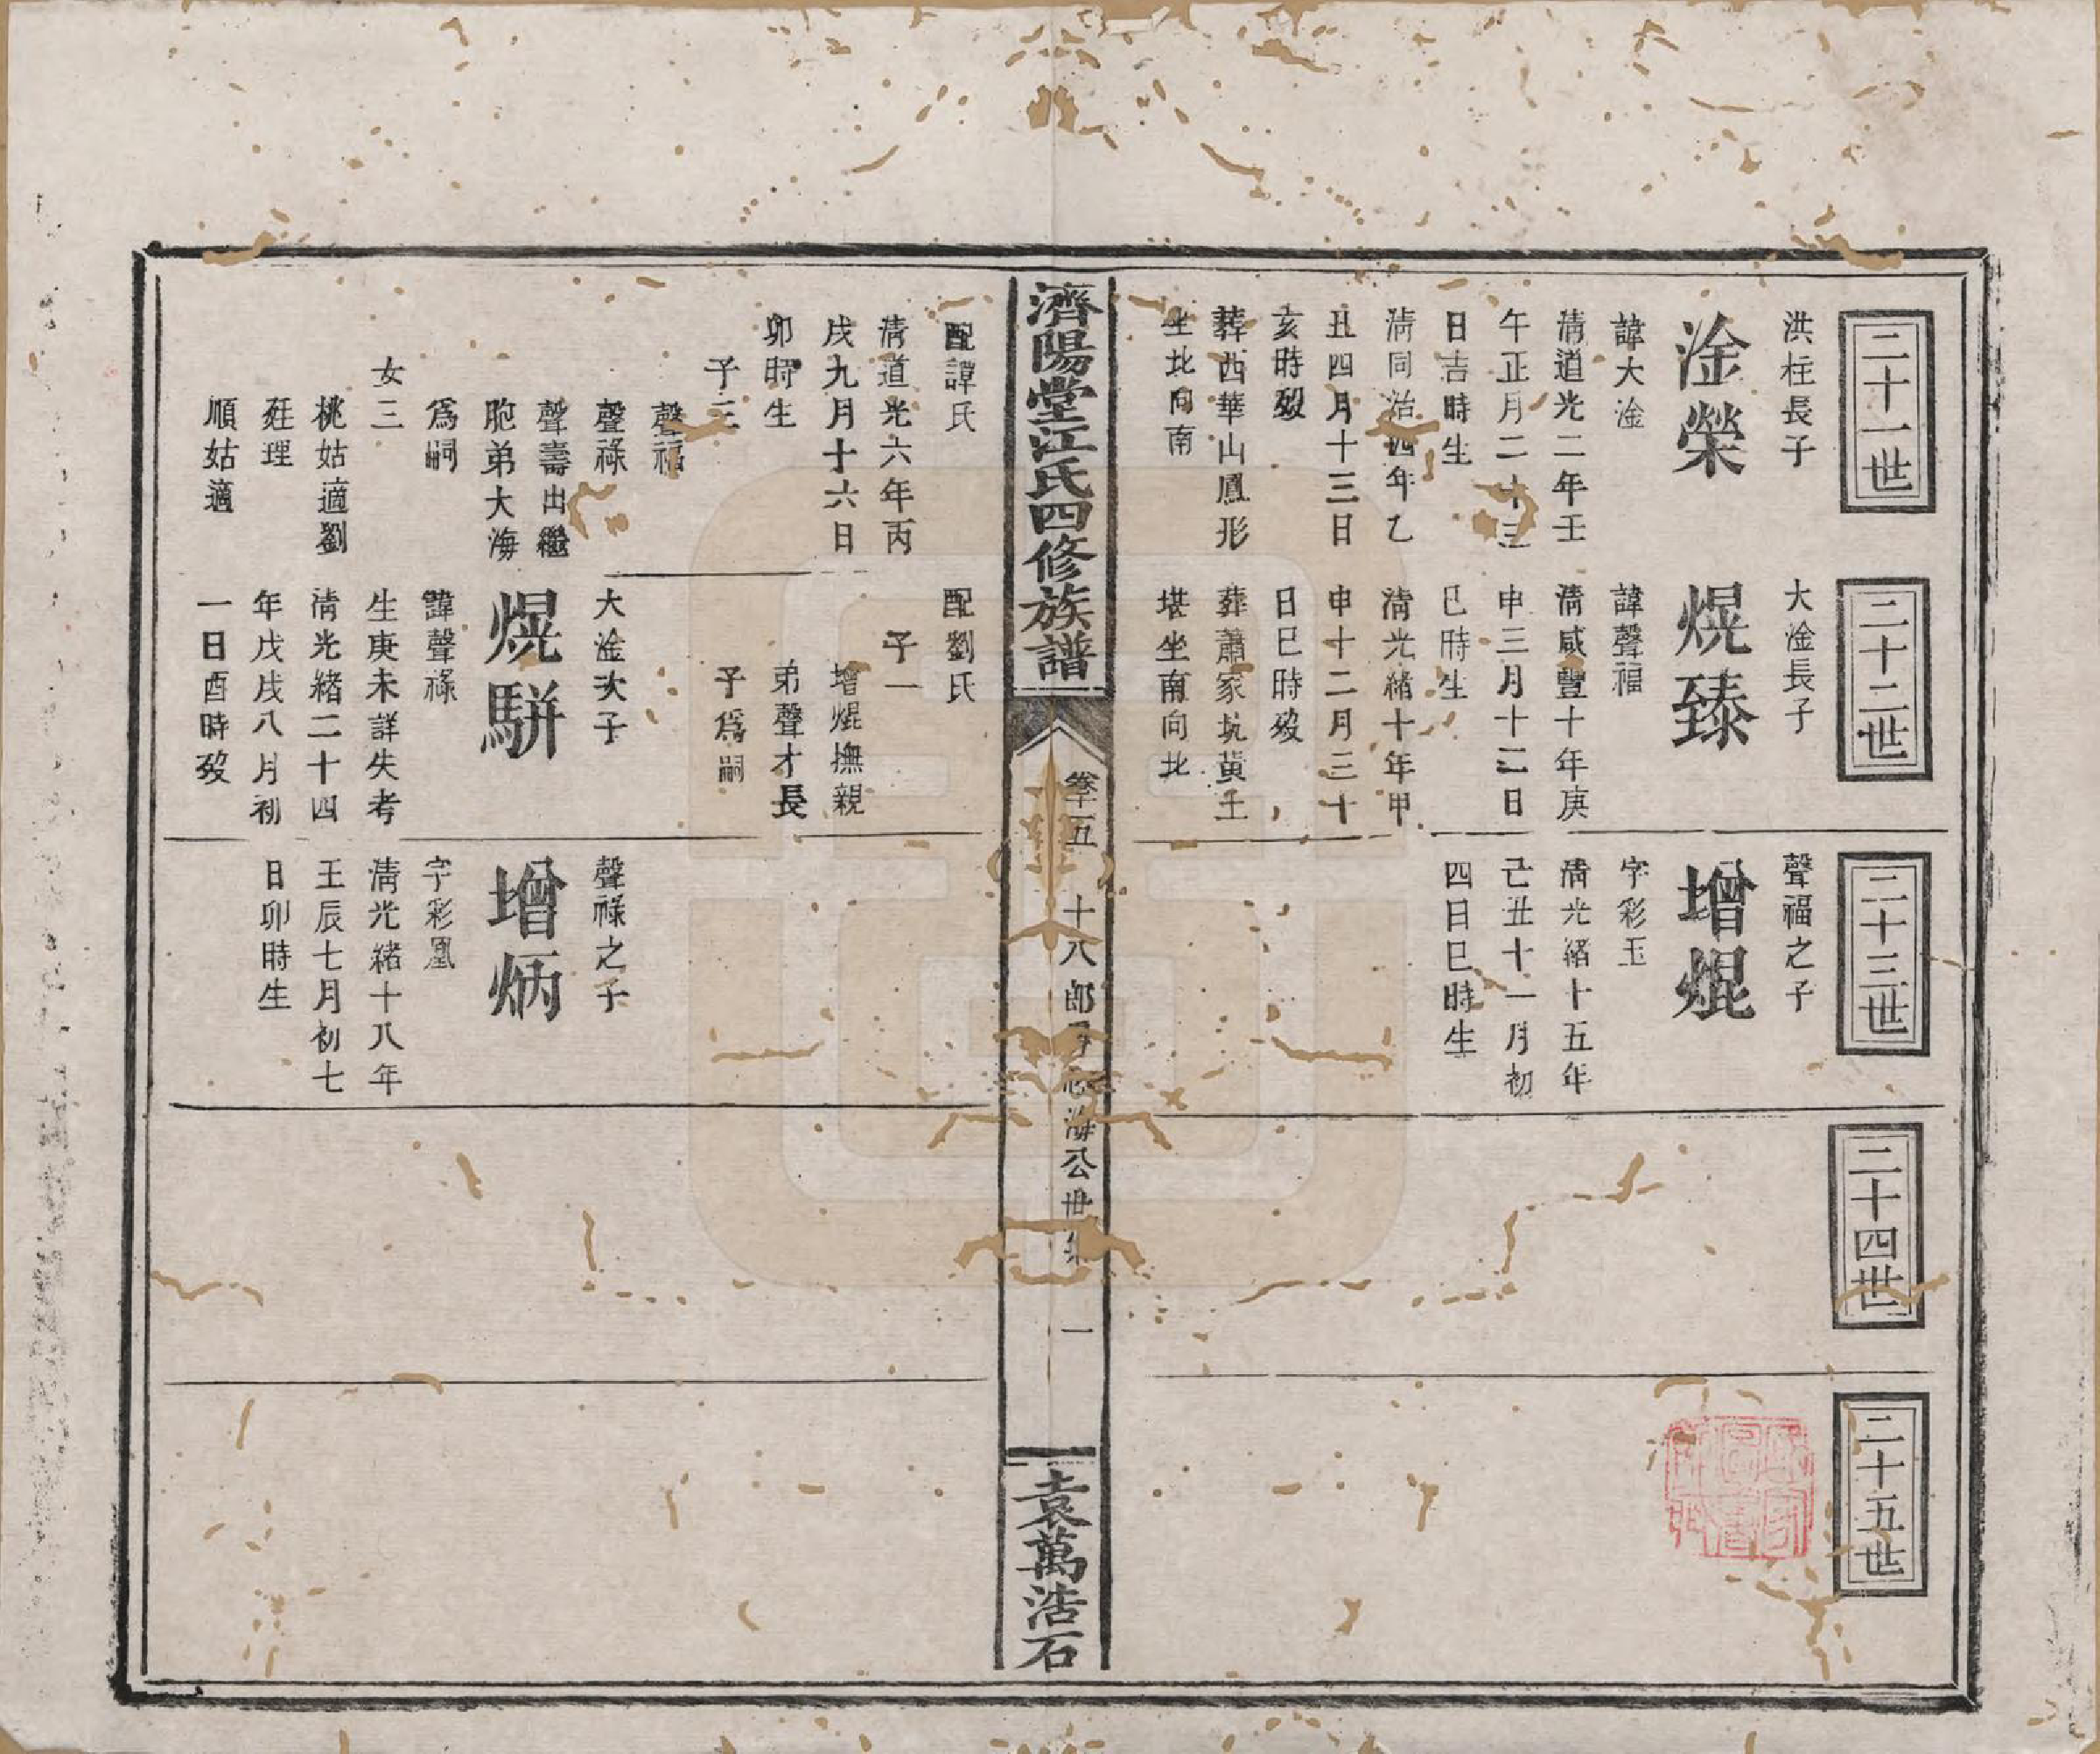 二十一世
洪柱長子
淦榮
諱大淦
清道光二年壬
午正月二十三
日吉時生
清同治四年乙
丑四月十三日
亥時歿
葬西華山鳳形
坐北向南
二十二世
大淦長子
熀臻
諱聲福
清咸豐十年庚
申三月十二日
巳時生
清光緒十年甲
申十二月三十
日巳時歿
葬蕭家坑黃土
堪坐南向北
二十三世
聲福之子
增焜
字彩玉
清光緒十五年
己丑十一月初
四日巳時生
二十四世
二十五世
濟陽堂江氏四修族譜
卷十五
十八郎
海公世
一
袁萬浩石
配譚氏
清道光六年丙
戌九月十六日
卯時生
子三
聲福
聲祿
聲壽出繼
胞弟大海
爲嗣
女三
桃姑適劉
姙理
順姑適
配劉氏
子一
增焜撫親
弟聲才長
子爲嗣
大淦次子
熀騈
諱聲祿
生庚未詳失考
清光緒二十四
年戊戌八月初
一日酉時歿
聲祿之子
增炳
字彩凰
清光緒十八年
壬辰七月初七
日卯時生